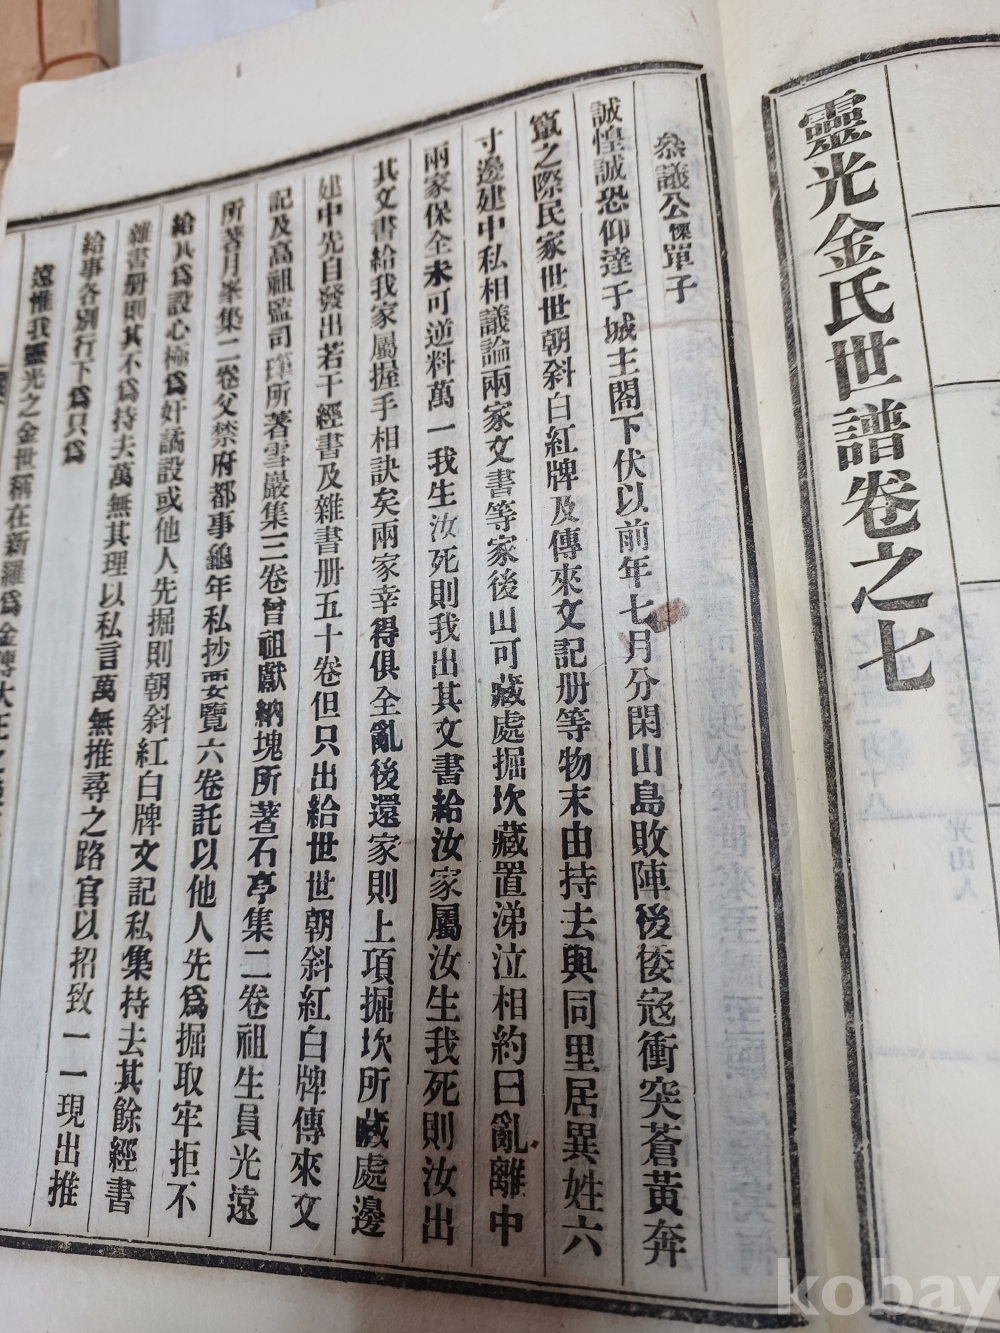 靈光金氏世譜卷之七
叅議公㥘單子
誠惶誠恐仰達于城主閤下伏以前年七月分閑山島敗陣後倭寇衝突蒼黃奔
竄之際民家世世朝斜白紅牌及傳來文記册等物末由持去與同里居異姓六
寸邊建中私相議論兩家文書等家後山可藏處掘坎藏置涕泣相約曰亂離中
兩家保全未可逆料萬一我生汝死則我出其文書給汝家屬汝生我死則汝出
其文書給我家屬握手相訣矣兩家幸得俱全亂後還家則上項掘坎所藏處邊
建中先自發出若干經書及雜書册五十卷但只出給世世朝斜紅白牌傳來文
記及高祖監司 所著雪巖集三卷曾祖獻納塊所著石亭集二卷祖生員光遠
所著月峯集二卷父禁府都事龜年私抄要覽六卷託以他人先爲掘取牢拒不
給其爲設心極爲奸譎設或他人先掘則朝斜紅白牌文記私集持去其餘經書
雜書册則其不爲持去萬無其理以私言萬無推尋之路官以招致一一現出推
給事各別行下爲只爲
遠惟我靈光之金世稱在新羅爲金傅大王之
kobay